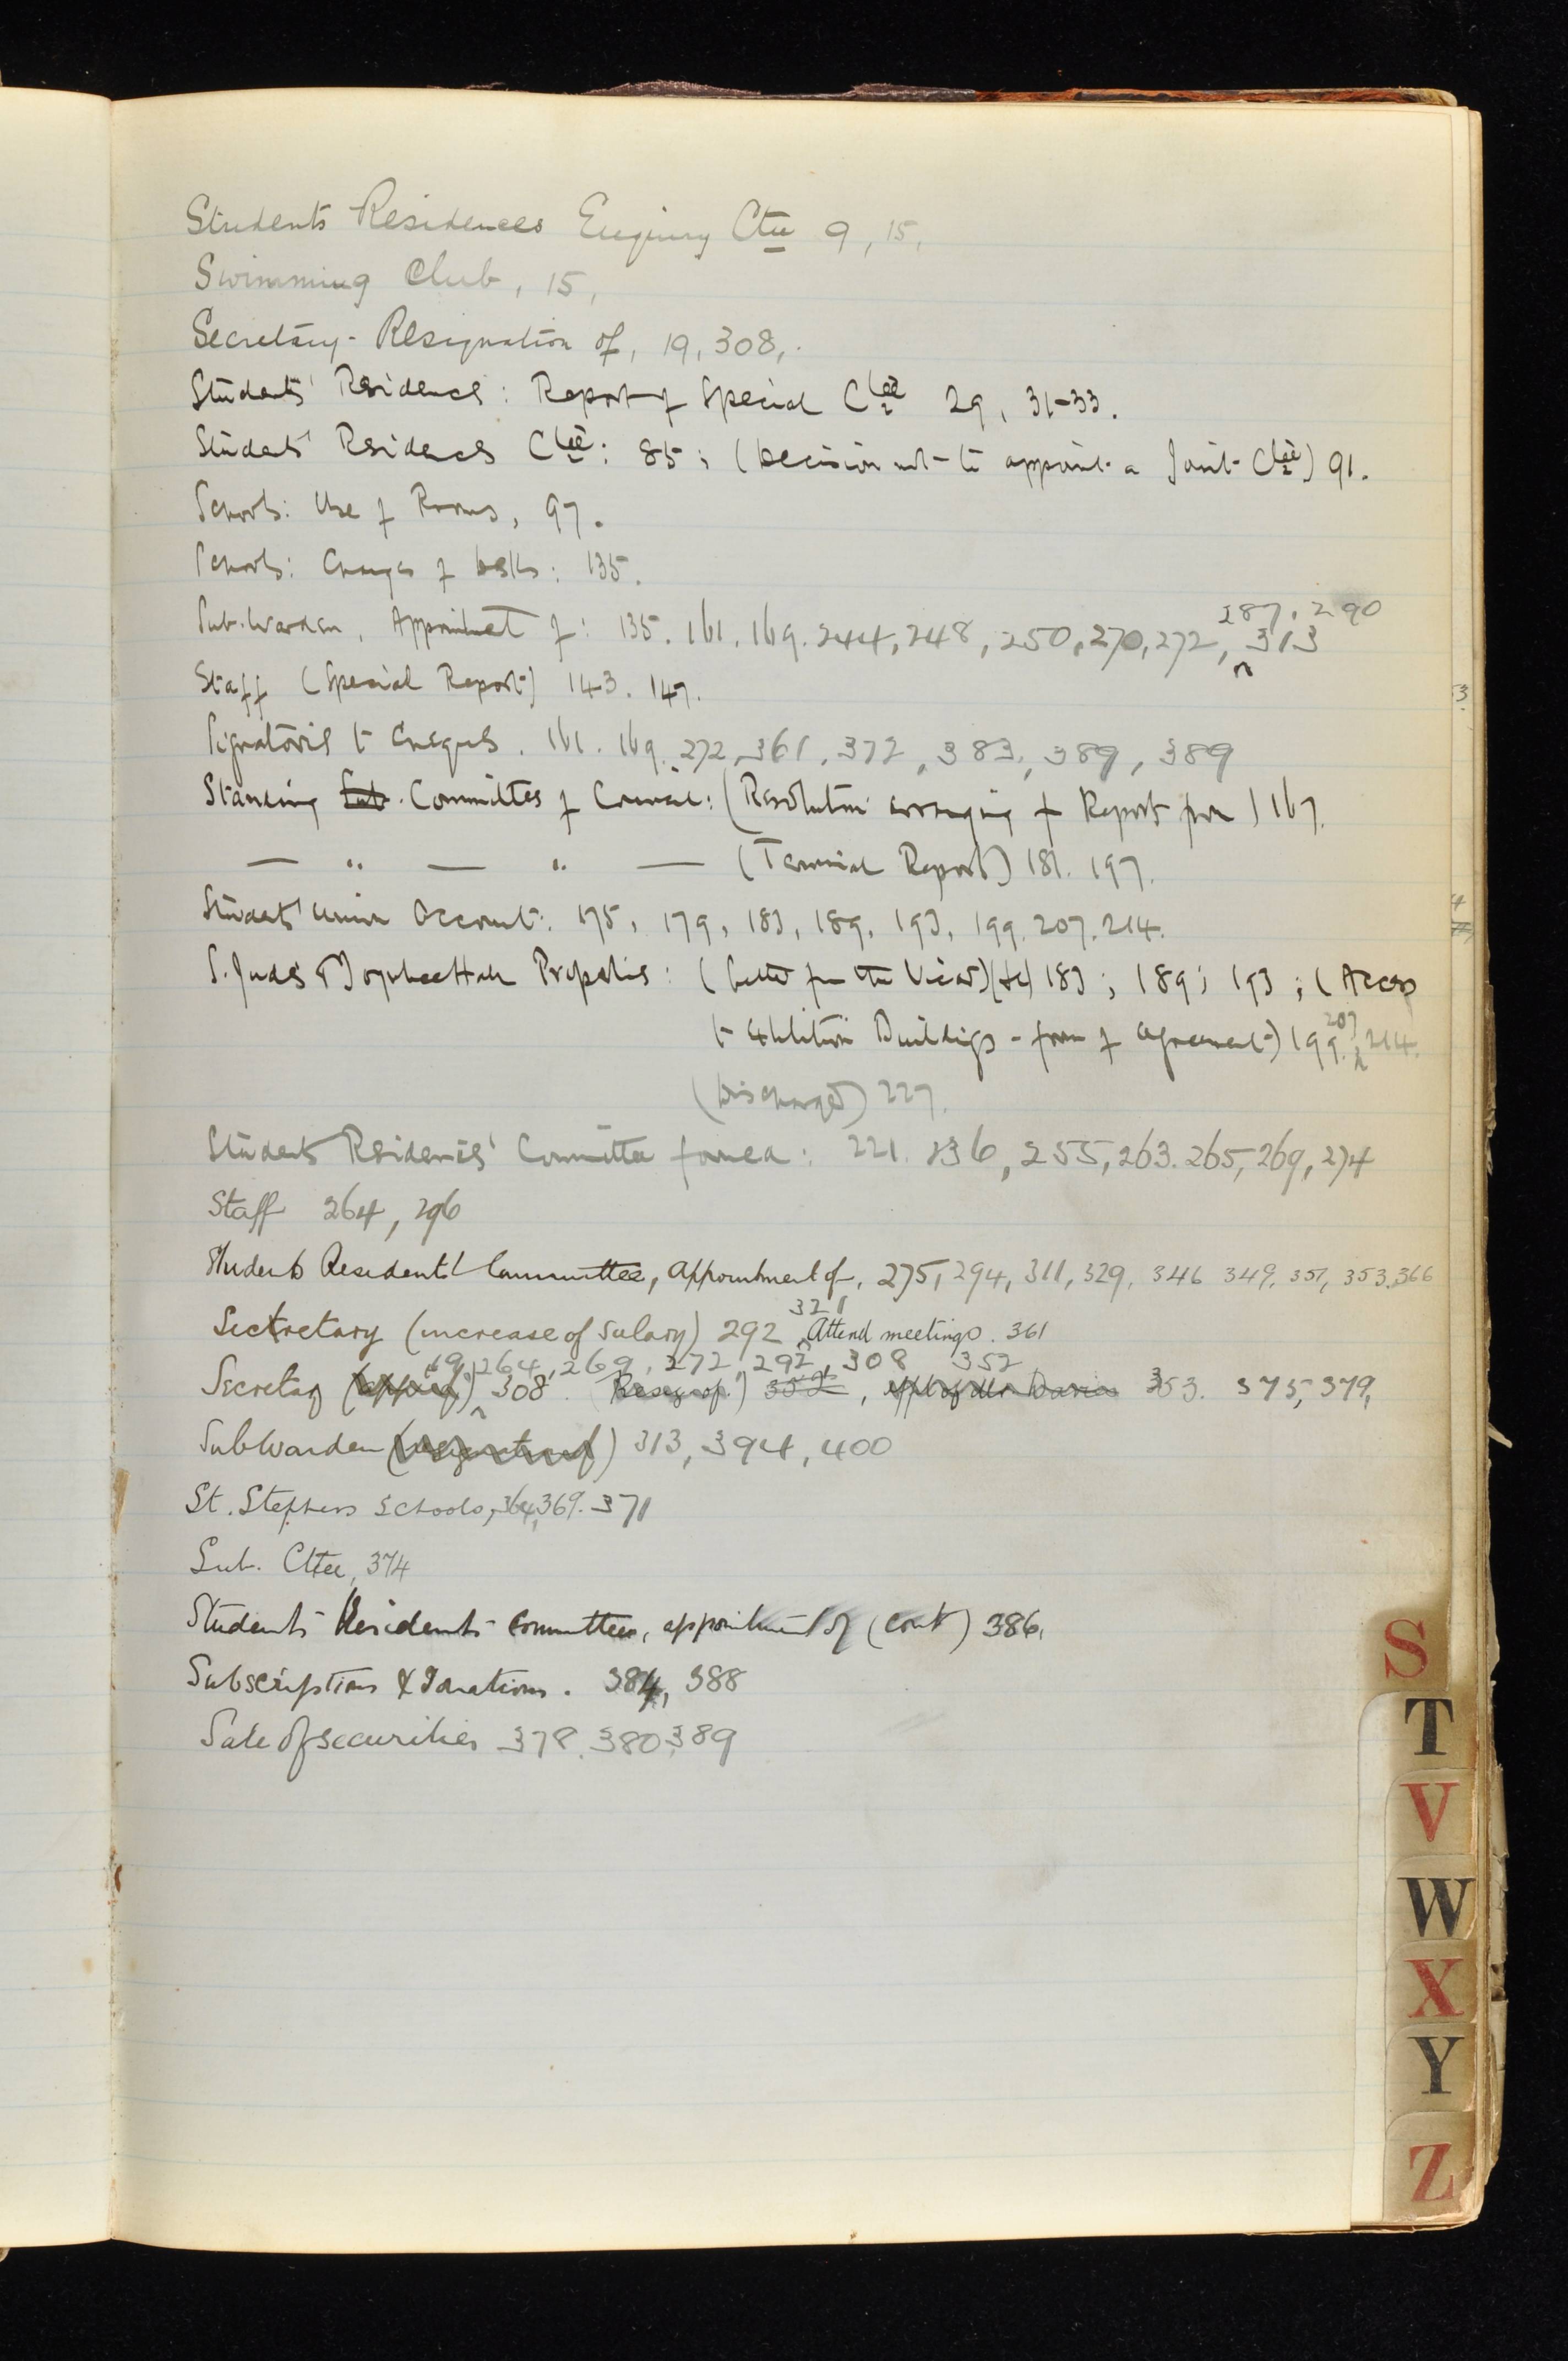 Students Residences Enquiry Ctee 9, 15,
Swimming Club, 15,
Secretary - Resignation of, 19, 308,.
Students' Residences: Report of Special Ctee 29, 31-33.
Students' Residences Ctee: 85; (Decision not to appoint a Joint Ctee) 91.
Schools: Use of Rooms, 97.
Schools: Charges of desks: 135.
287, 290
Sub-Warden, Appointment of: 135. 161. 169. 244, 248, 250, 270, 272, ^ 313
Staff (Special Report) 143. 147.
Signatories to Cheques. 161. 169. 272, 361, 372, 383, 389, 389
Standing Sub. Committees of Council: (Resolution arranging for Report from) 167.
— " — " — (Terminal Report) 181. 197.
Students' Union Account: 175, 179, 183, 189, 193, 199. 207. 214.
S. Jude's & Toynbee Hall Properties: (Letter from the Vicar) 183; 189; 193; (Access
207
to Exhibition Buildings - form of Agreement) 199. ^ 214.
(Discharged) 227.
Students Residences' Committee formed: 221. 236, 255, 263. 265, 269, 274
Staff 264, 296
Students Residents' Committee, appointment of, 275, 294, 311, 329, 346 349, 351, 353, 366
321
Secretary (increase of salary) 292 ^ Attend meetings. 361
19, 264, 269, 272, 292, 308 352
Secretary 308 353. 375, 379,
SubWarden 313, 394, 400
St. Stephens Schools, 364, 369. 371
Sub. Cttee, 374
Students Residents Committee, appointment of (cont) 386,
Subscriptions & Donations. 384, 388
Sale of securities 378, 380, 389
S
T
V
W
X
Y
Z